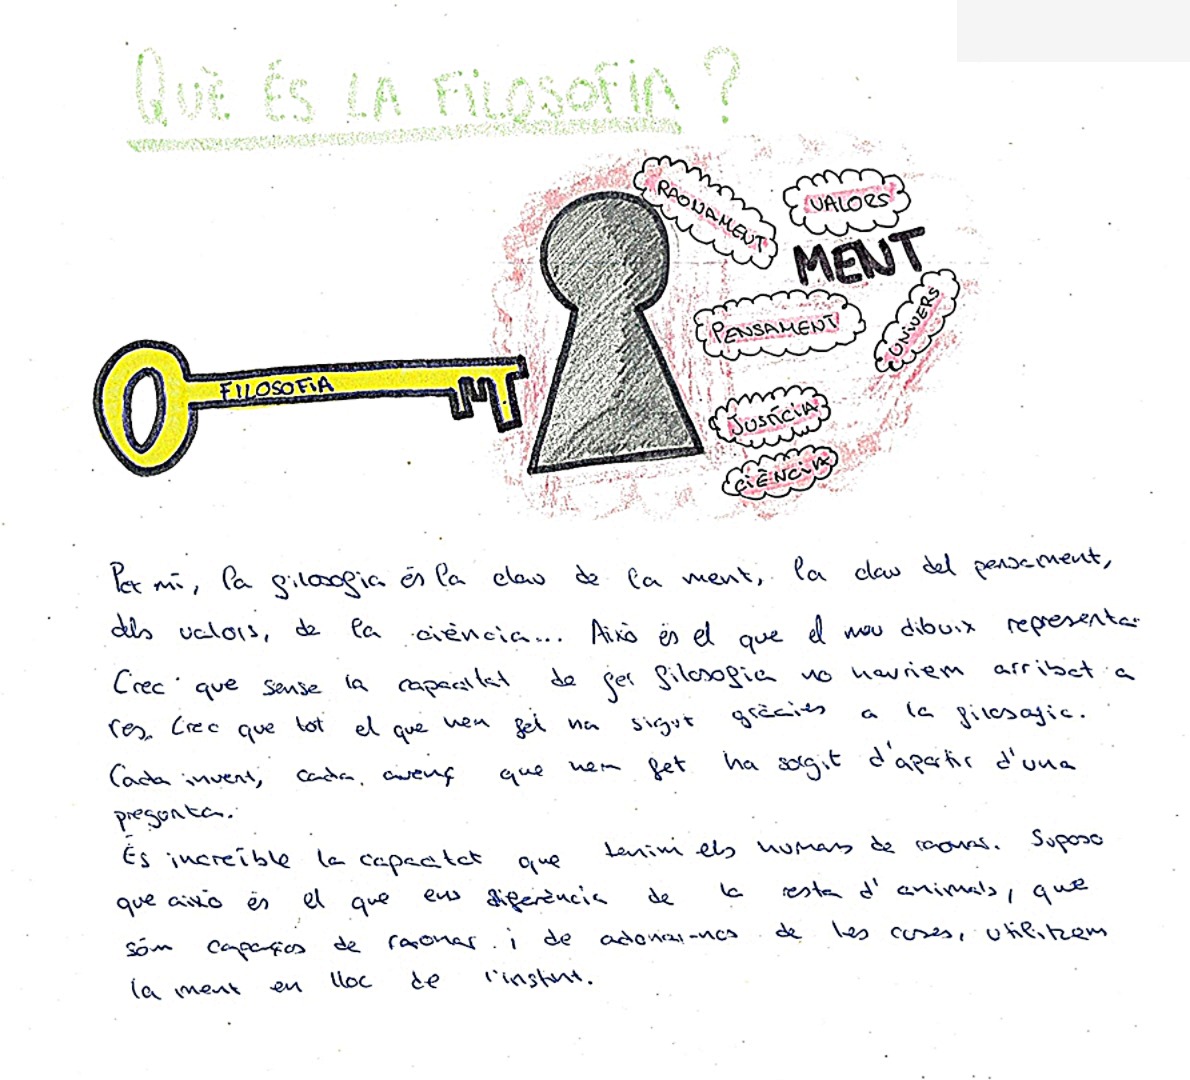 QUÈ ÉS LA FILOSOFIA?
RAONAMENT
VALORS
MENT
PENSAMENT
UNIVERS
FILOSOFIA
JUSTÍCIA
CIÈNCIA
Per mi, la filosofia és la clau de la ment, la clau del pensament,
dels valors, de la ciència... Això és el que el meu dibuix representa.
Crec que sense la capacitat de fer filosofia no hauriem arribat a
res. Crec que tot el que hem fet ha sigut gràcies a la filosofia.
Cada invent, cada avenç que hem fet ha sorgit d'apartir d'una
pregunta.
És increïble la capacitat que tenim els humans de raonar. Suposo
que això és el que ens diferència de la resta d'animals, que
sóm capaços de raonar i de adonar-nos de les coses, utilitzem
la ment en lloc de l'instint.